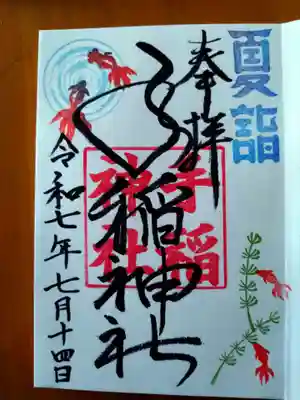 夏詣
奉拝
手稲神社
手稲
神社
令和七年七月十四日